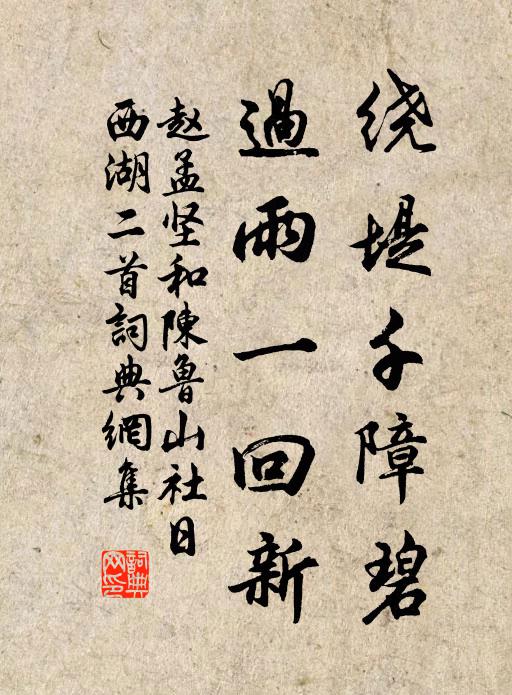 绕堤千障碧
過雨一回新
赵孟坚和陳鲁山社日
西湖二首詞典網集
詞典网印